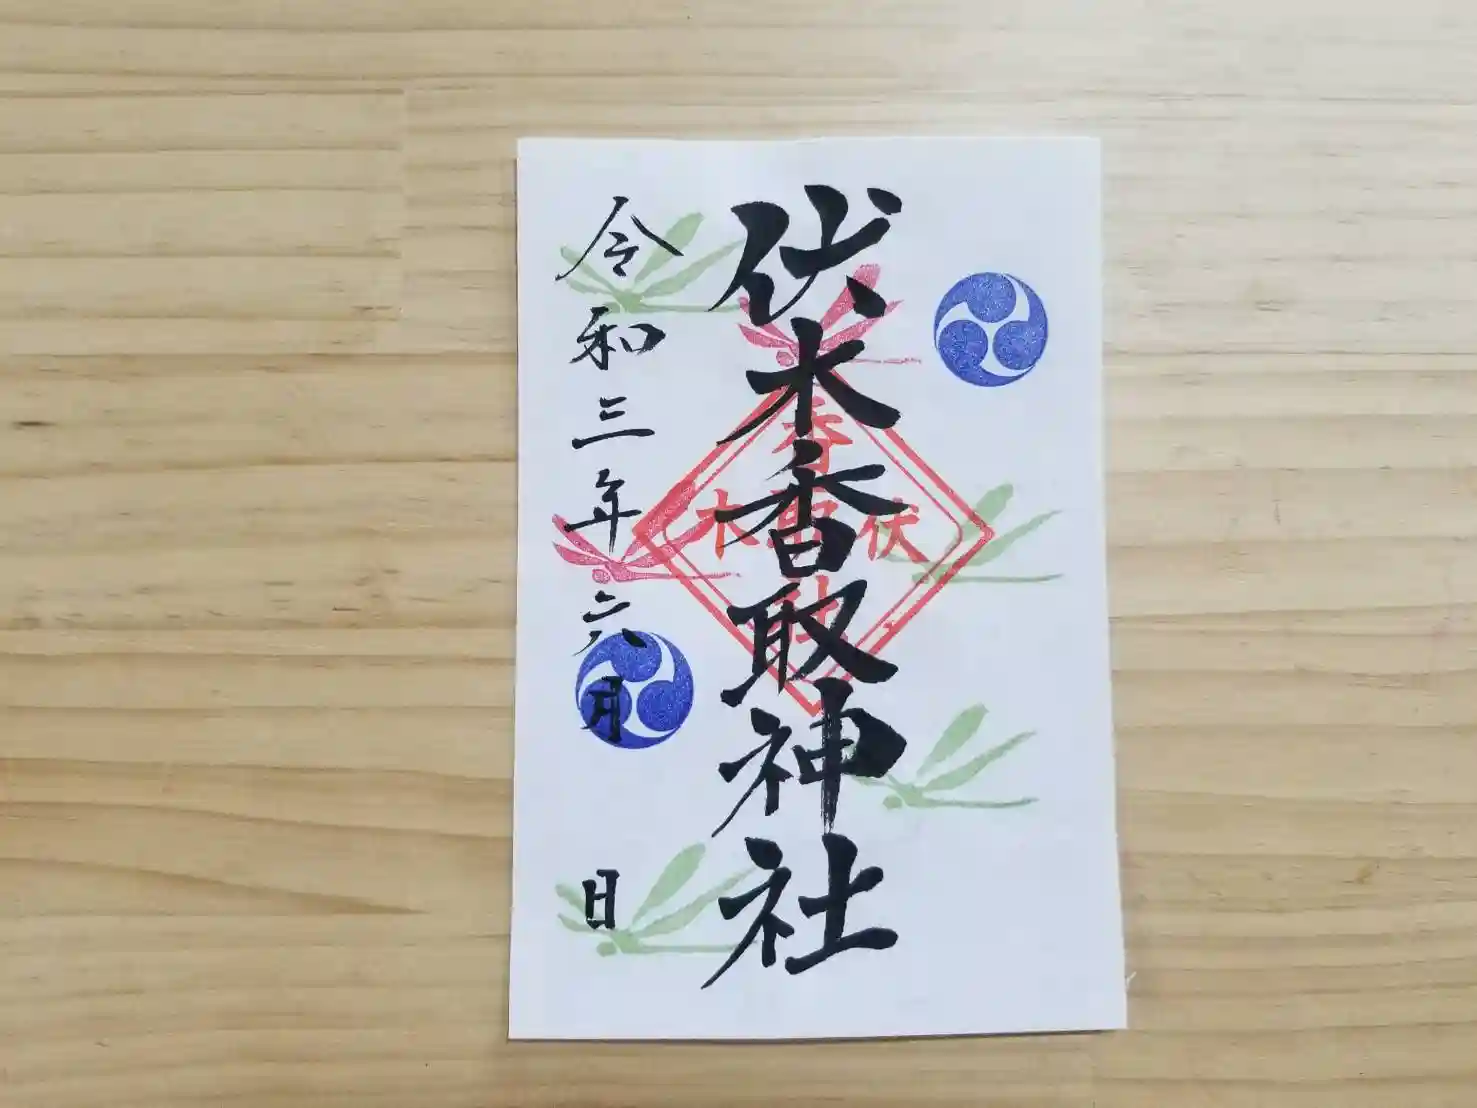 伏木香取神社
令和三年六月 日
香
伏 木
社